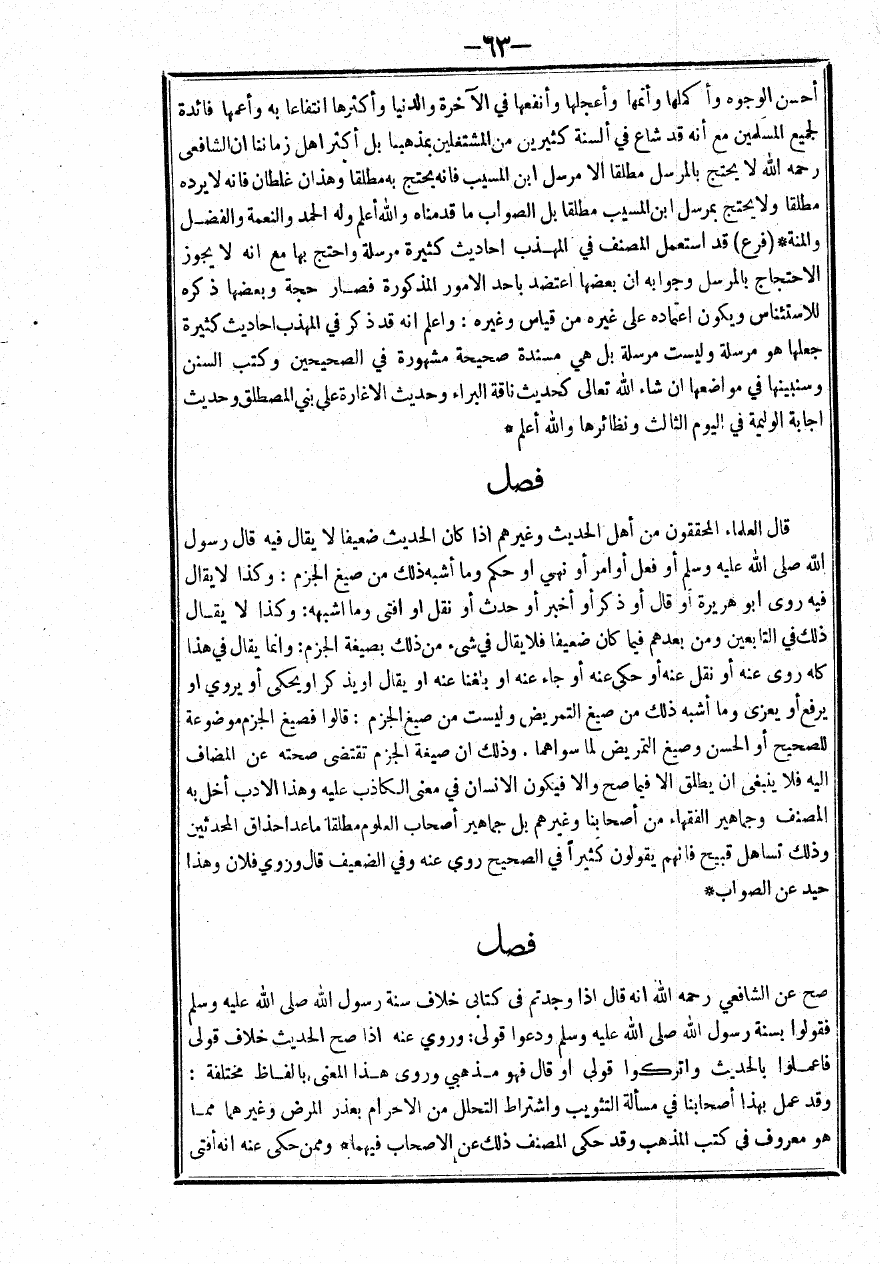 —٦٣—
أحسن الوجوه وأكملها وأتمها وأعجلها وأنفعها في الآخرة والدنيا وأكثرها انتفاعا به وأعمها فائدة
لجميع المسلمين مع أنه قد شاع في ألسنة كثيرين من المشتغلين بمذهبنا بل أكثر اهل زماننا ان الشافعى
رحمه الله لا يحتج بالمرسل مطلقا الا مرسل ابن المسيب فانه يحتج به مطلقا وهذان غلطان فانه لا يرده
مطلقا ولا يحتج بمرسل ابن المسيب مطلقا بل الصواب ما قدمناه والله أعلم وله الحمد والنعمة والفضـل
والمنة* (فرع) قد استعمل المصنف في المهـذب احاديث كثيرة مرسلة واحتج بها مع انه لا يجوز
الاحتجاج بالمرسل وجوابه ان بعضها اعتضد باحد الامور المذكورة فصـار حجة وبعضها ذكره
للاستئناس ويكون اعتماده على غيره من قياس وغيره : واعلم انه قد ذكر في المهذب احاديث كثيرة
جعلها هو مرسلة وليست مرسلة بل هي مسندة صحيحة مشهورة في الصحيحين وكتب السنن
وسنبينها في مواضعها ان شاء الله تعالى كحديث ناقة البراء وحديث الاغارة على بني المصطلق وحديث
اجابة الوليمة في اليوم الثالث ونظائرها والله أعلم *
فصل
قال العلماء المحققون من أهل الحديث وغيرهم اذا كان الحديث ضعيفا لا يقال فيه قال رسول
الله صلى الله عليه وسلم أو فعل أو امر أو نهي او حكم وما أشبه ذلك من صيغ الجزم : وكذا لا يقال
فيه روى ابو هريرة أو قال أو ذكر أو أخبر أو حدث أو نقل او افتى وما اشبهه: وكذا لا يقـال
ذلك في التابعين ومن بعدهم فيما كان ضعيفا فلا يقال في شىء من ذلك بصيغة الجزم: وانما يقال في هذا
كله روى عنه أو نقل عنه أو حكي عنه أو جاء عنه او بلغنا عنه او يقال او يذكر او يحكى أو يروي او
يرفع أو يعزى وما أشبه ذلك من صيغ التمريض وليست من صيغ الجزم : قالوا فصيغ الجزم موضوعة
للصحيح أو الحسن وصيغ التمريض لما سواهما . وذلك ان صيغة الجزم تقتضى صحته عن المضاف
اليه فلا ينبغى ان يطلق الا فيما صح والا فيكون الانسان في معنى الكاذب عليه وهذا الادب أخل به
المصنف وجماهير الفقهاء من أصحابنا وغيرهم بل جماهير أصحاب العلوم مطلقا ما عدا حذاق المحدثين
وذلك تساهل قبيح فانهم يقولون كثيراً في الصحيح روي عنه وفي الضعيف قال وروي فلان وهذا
حيد عن الصواب*
فصل
صح عن الشافعي رحمه الله انه قال اذا وجدتم فى كتابى خلاف سنة رسول الله صلى الله عليه وسلم
فقولوا بسنة رسول الله صلى الله عليه وسلم ودعوا قولى: وروي عنه اذا صح الحديث خلاف قولى
فاعمـلوا بالحديث واتركوا قولى او قال فهو مـذهبي وروى هـذا المعنى بالفـاظ مختلفة :
وقد عمل بهذا أصحابنا في مسألة التثويب واشتراط التحلل من الاحرام بعذر المرض وغيرهما ممـا
هو معروف فى كتب المذهب وقد حكى المصنف ذلك عن الاصحاب فيهما* وممن حكى عنه انه أفتى